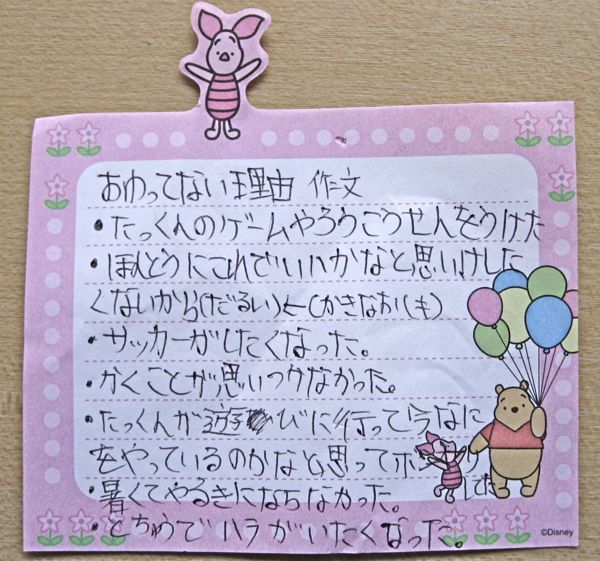 おわってない理由 作文
・たっくんのゲームやろうこうせんをうけた
・ほんとうにこれでいいかなと思いけした
くないから(だるい)←(かきなおしも)
・サッカーがしたくなった。
・かくことが思いつかなかった。
・たっくんが遊びに行って今なに
をやっているのかなと思ってボーっと
した
・暑くてやるきにならなかった。
・とちゅうでハラがいたくなった。
©Disney